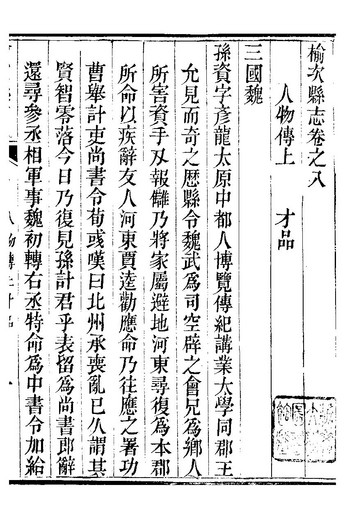 榆次縣志卷之八
人物傳上　才品
三國魏
孫資字彥龍太原中都人博覽傳紀講業大學同郡王
允見而奇之歷縣令魏武為司空辟之會兄為鄉人
所害資手刃報讎乃將家屬避地河東尋復為本郡
所命以疾辭友人河東賈逵勸應命乃往應之署功
曹舉計吏尚書令荀彧嘆曰北州承喪亂已久謂其
賢智零落今日乃復見孫計君乎表留為尚書郎辭
還尋參丞相軍事魏初轉右丞特命為中書令加給
人物傳上才品